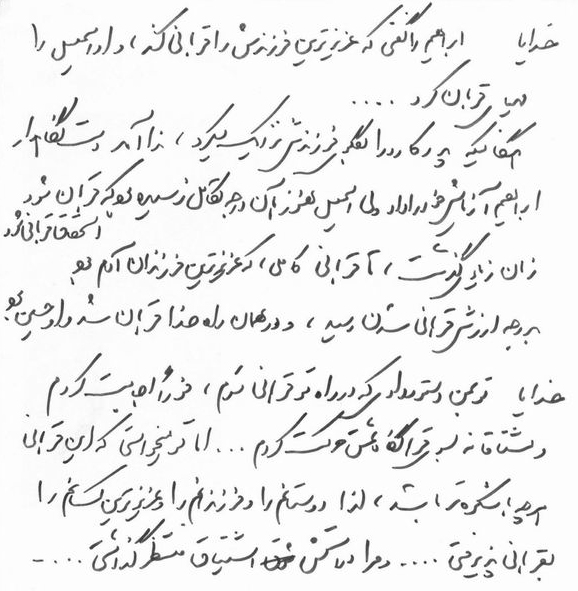 خدایا ابراهیم را گفتی که عزیزترین فرزندش را قربانی کند، و او اسمعیل را
مهیای قربان کرد ....
هنگامیکه پدر کارد را بگلوی فرزندش نزدیک میکرد، ندا آمد دست نگهدار
ابراهیم آزمایش خود را داد ولی اسمعیل هنوز بآن درجه تکامل نرسیده بود که قربان شود
استحقاق قربانی شود
زمان زیادی گذشت، تا قربانی کاملی، که عزیزترین فرزندان آدم بود
بدرجه ارزش قربانی شدن رسید، و در همان راه خدا قربان شد و او حسین بود
خدایا تو بمن دستور دادی که در راه تو قربانی شوم، فوراً اجابت کردم
و مشتاقانه بسوی قربانگاه عشق حرکت کردم ... اما تو میخواستی که این قربانی
هرچه باشکوه‌تر باشد، لذا دوستانم را و فرزندانم را و عزیزترین کسانم را
بقربانی پذیرفتی .... و مرا در آتش اشتیاق منتظر گذاشتی ....